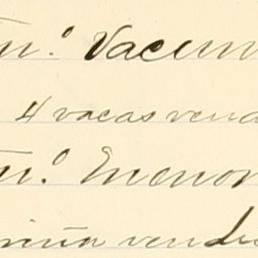 Tn.º Vacun
4 vacas vend
Tn.º Menor
vend